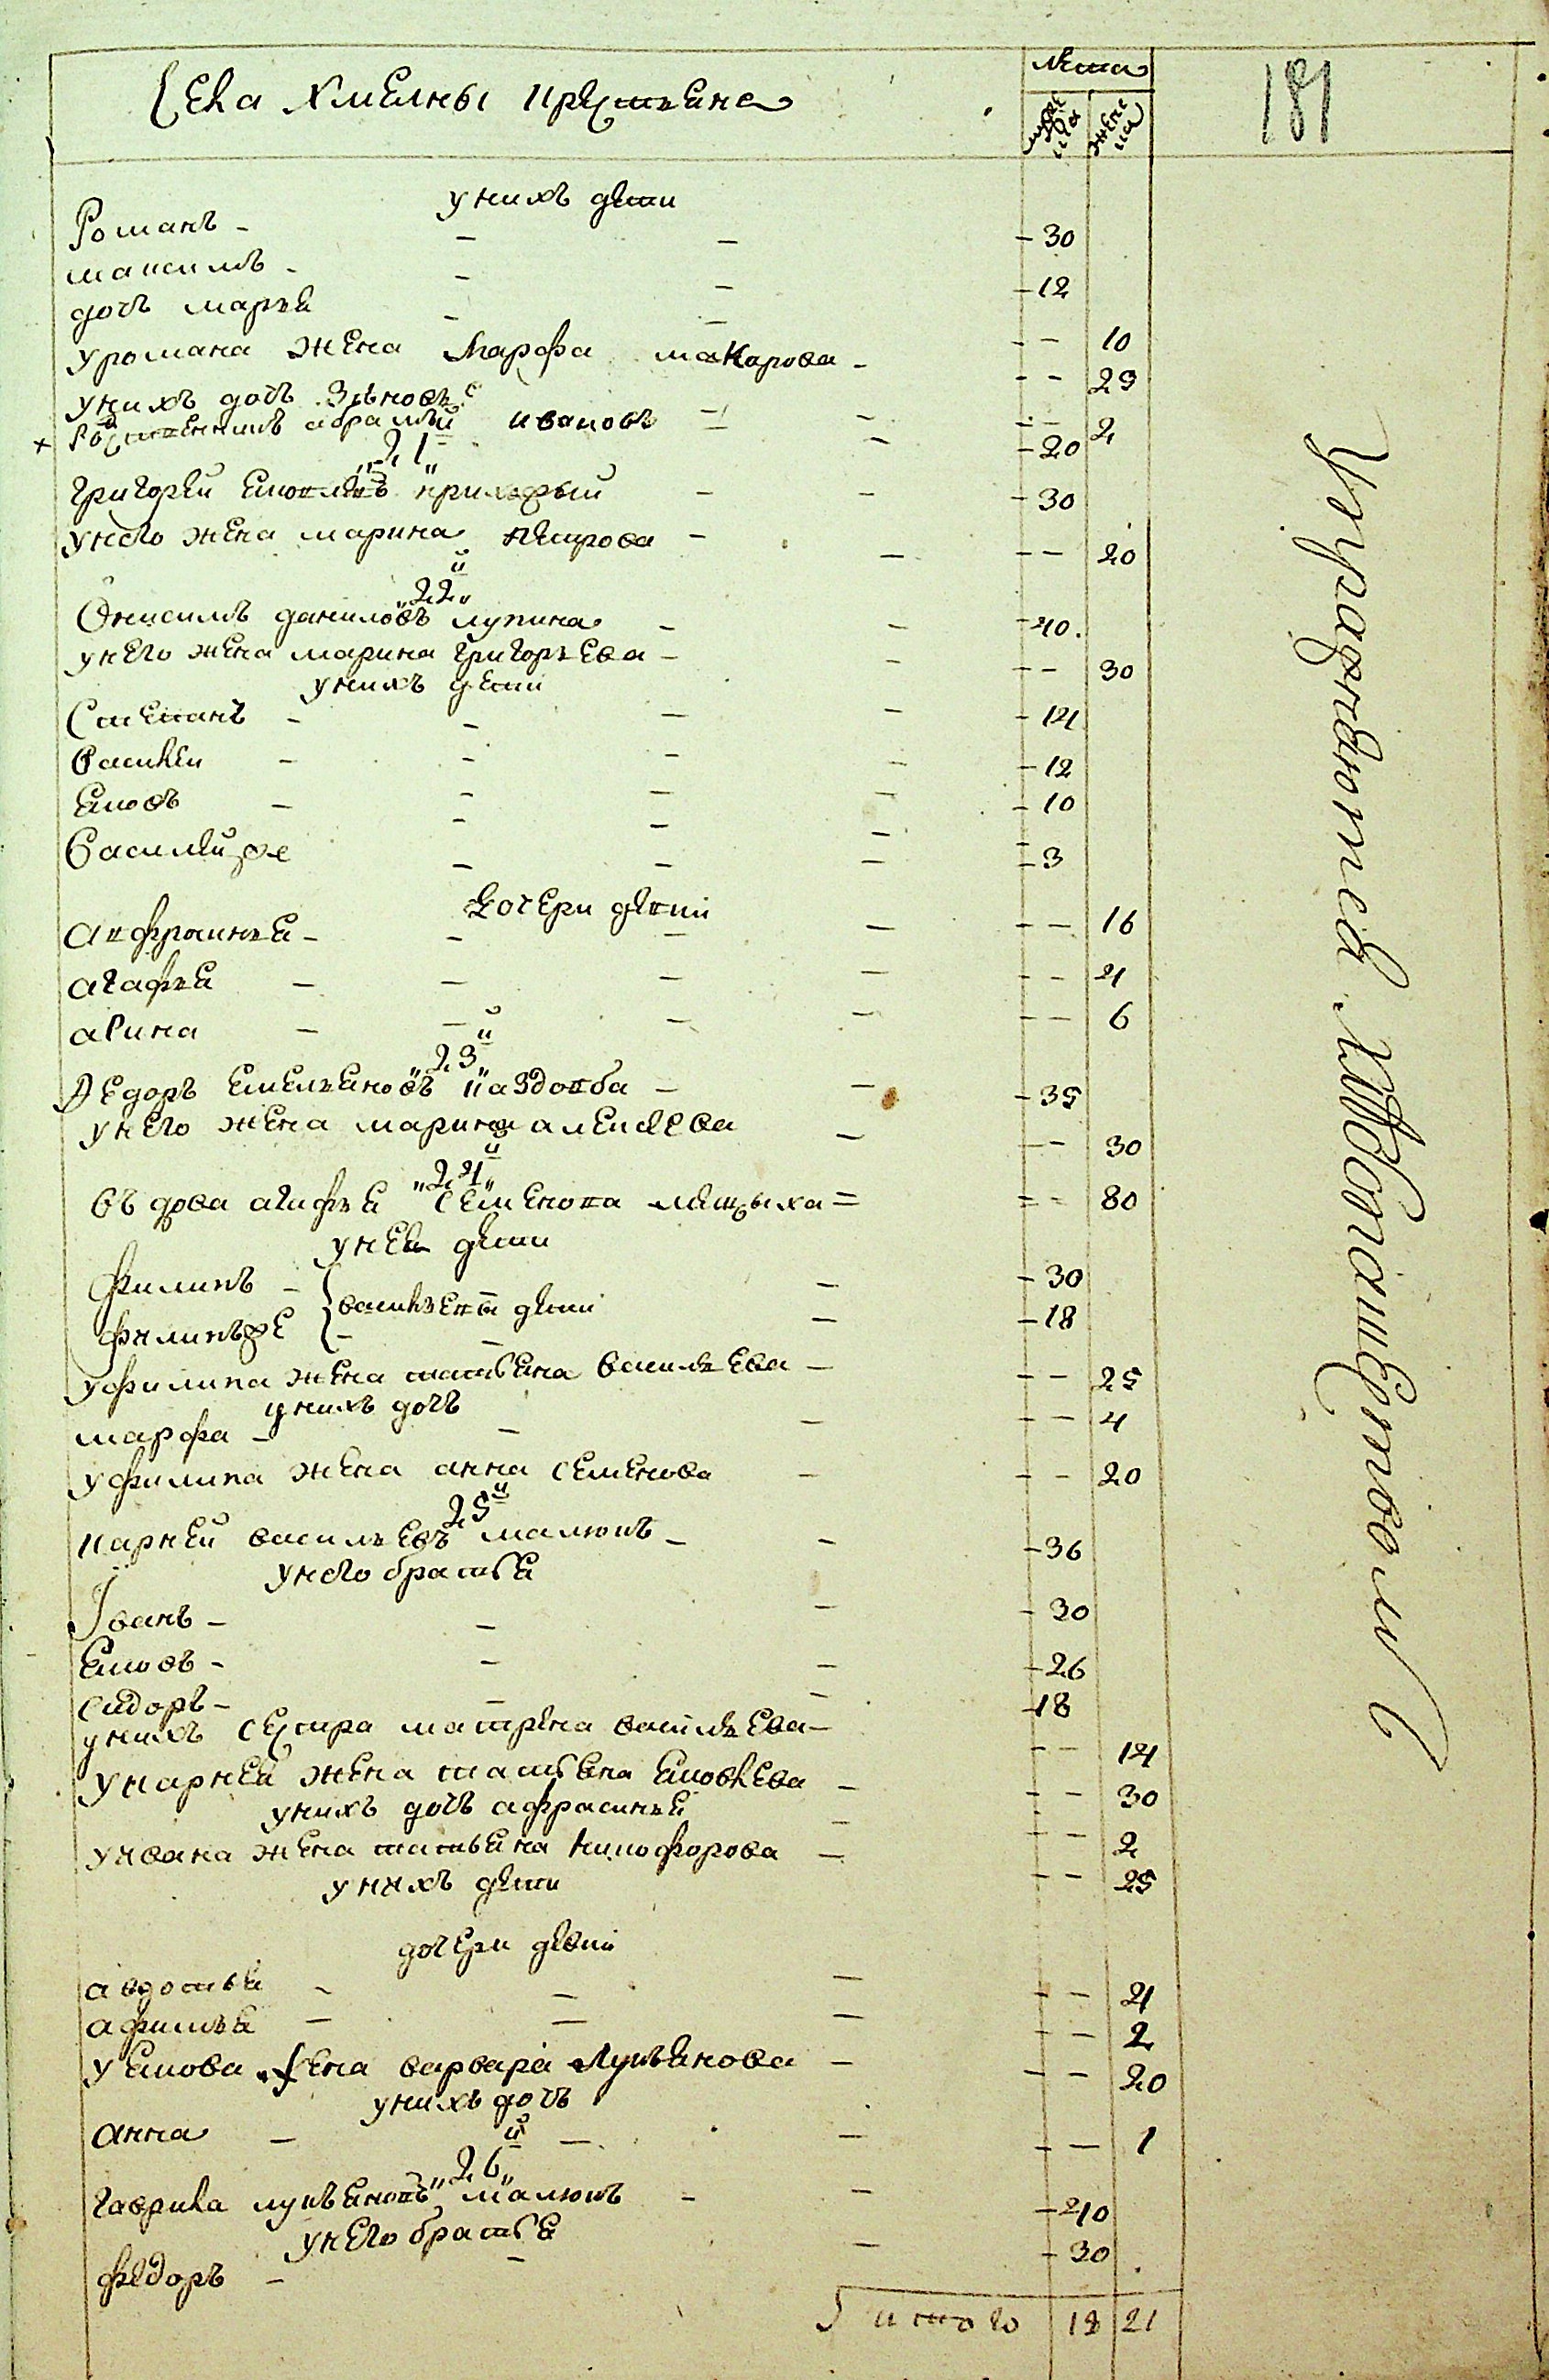 Села Хмелны крестьяне
лета
мужеска
женска
181
у нихъ дети
Романъ - 30
максимъ - 12
дочь марья - 10
у романа жена Марфа макарова - 29
у нихъ дочь Зеновья - 2
+ родственникъ абрамъ ивановъ - 20
21й
григорей яковлевъ - 30
у него жена марина петрова - 20
22й
Онисимъ даниловъ лупина - 40
у него жена марина григорьева - 30
у нихъ дети
Степанъ - 14
василей - 12
яковъ - 10
василей же - 3
дочери девки
афросинья - 16
агафья - 4
акина - 6
23й
Федоръ емельяновъ каздовба - 35
у него жена марина алексеева - 30
24й
въдова агафья семенова - 80
у нея дети
филипъ - 30
филипъ же - 18
васильевы дети
у филипа жена татьяна васильева - 25
у нихъ дочь
марфа - 4
у филипа жена анна семенова - 20
25й
карней васильевъ малюкъ - 36
у него братья
Иванъ - 30
яковъ - 26
сидоръ - 18
у нихъ сестра матрена васильева - 14
у карнея жена татьяна яковлева - 30
у нихъ дочь афрасинья - 2
у ивана жена татьяна никифорова - 25
у нихъ дети
дочери девки
авдотья - 4
афимья - 2
у якова жена варвара лукьянова - 20
у нихъ дочь
анна - 1
26й
гаврила лукьяновъ малюкъ - 40
у него братья
федоръ - 30
итого 18 21